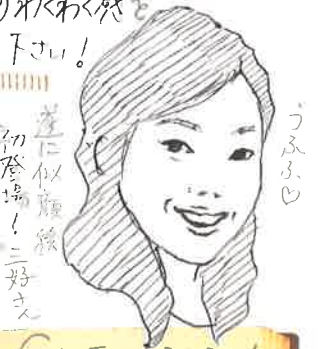 わくわく感を
下さい！
遂に似顔絵
初登場！三好さん
うふふ♡